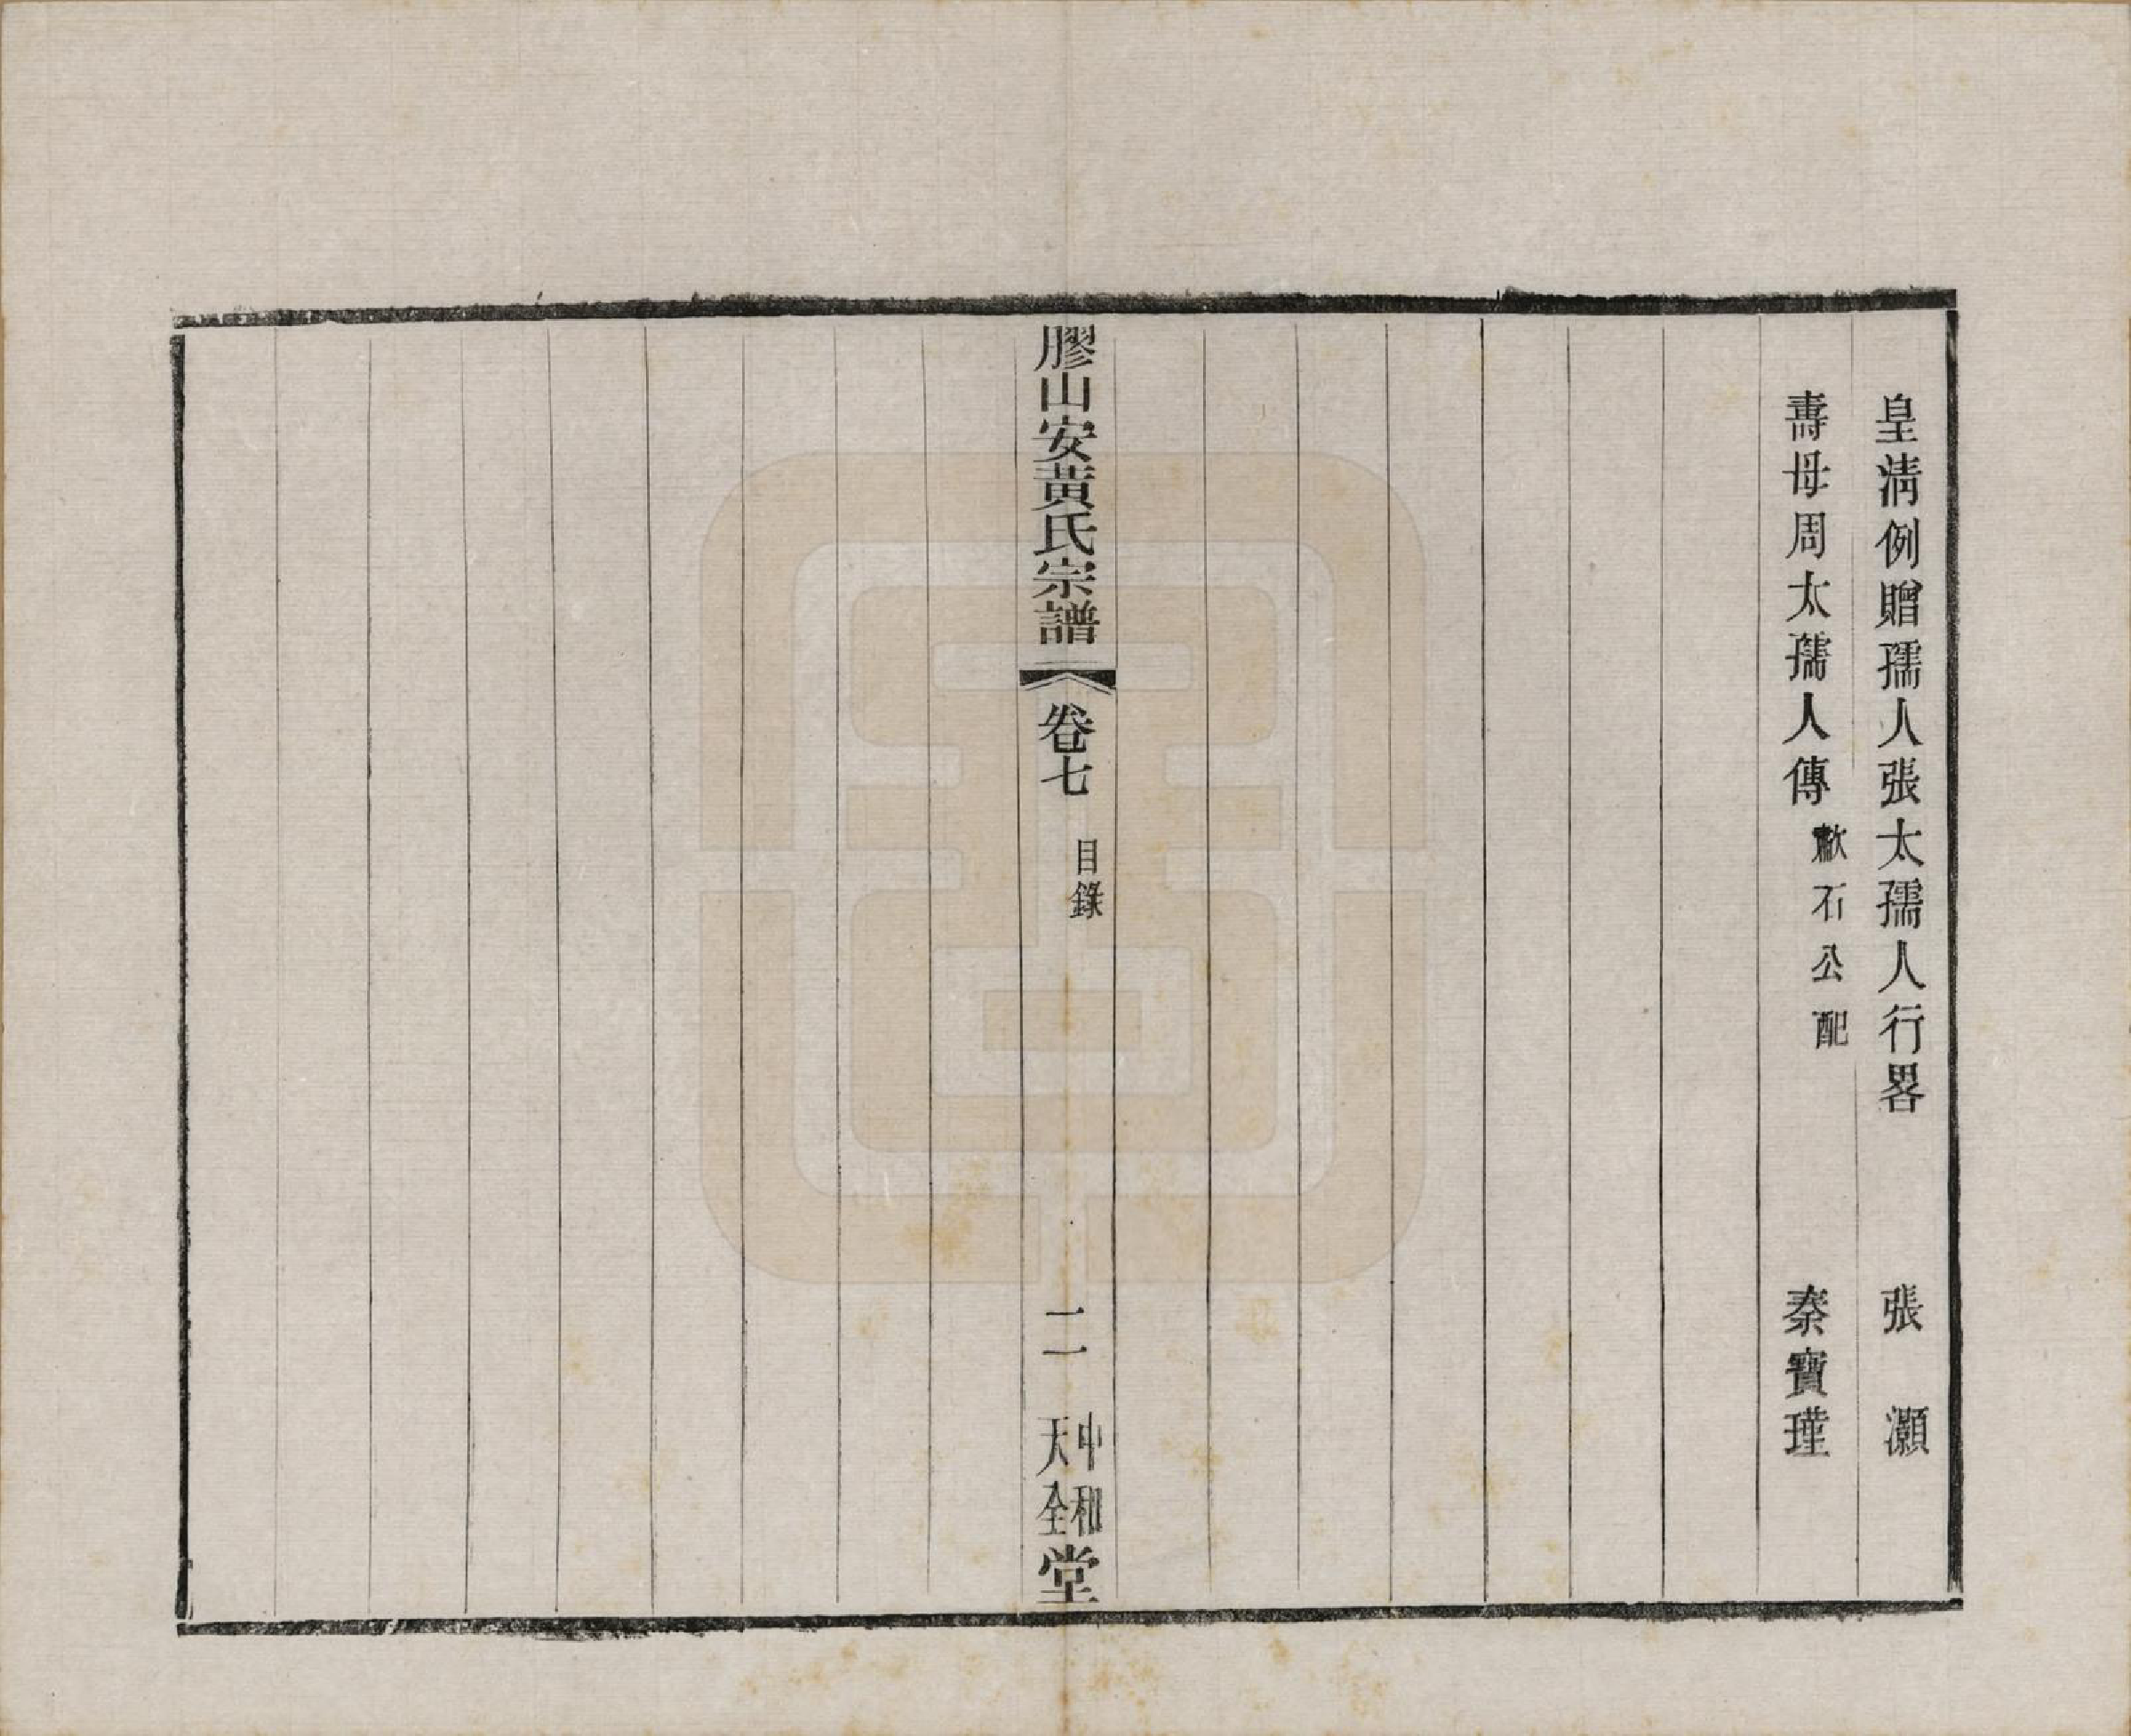 皇清例贈孺人張太孺人行畧　張灝
壽母周太孺人傳　歗石公配　秦寶瑾
膠山安黃氏宗譜　卷七　目錄　二　中和天全堂